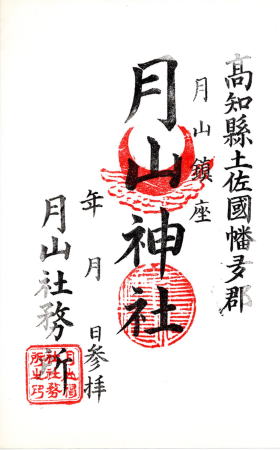 高知縣土佐國幡多郡
月山鎮座
月山神社
年 月 日参拝
月山社務所